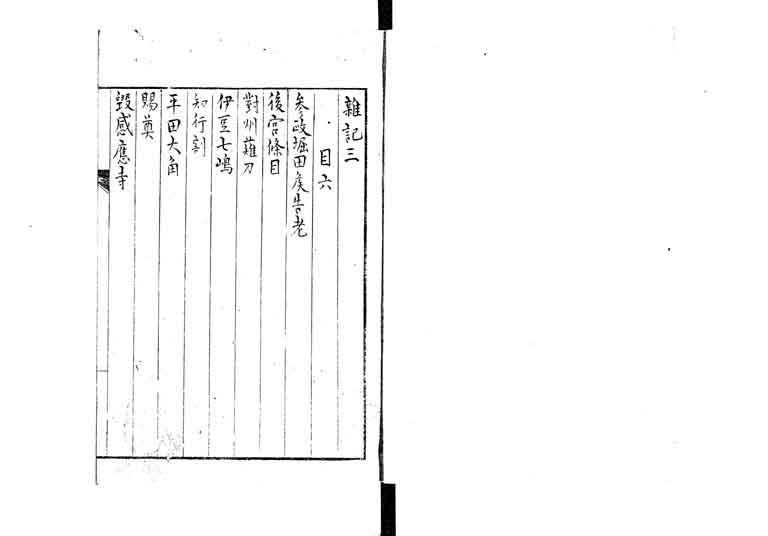 雜記三
目六
参政堀田矦告老
後宮條目
對州薙刀
伊豆七嶋
知行割
平田大角
賜奠
毀感應寺